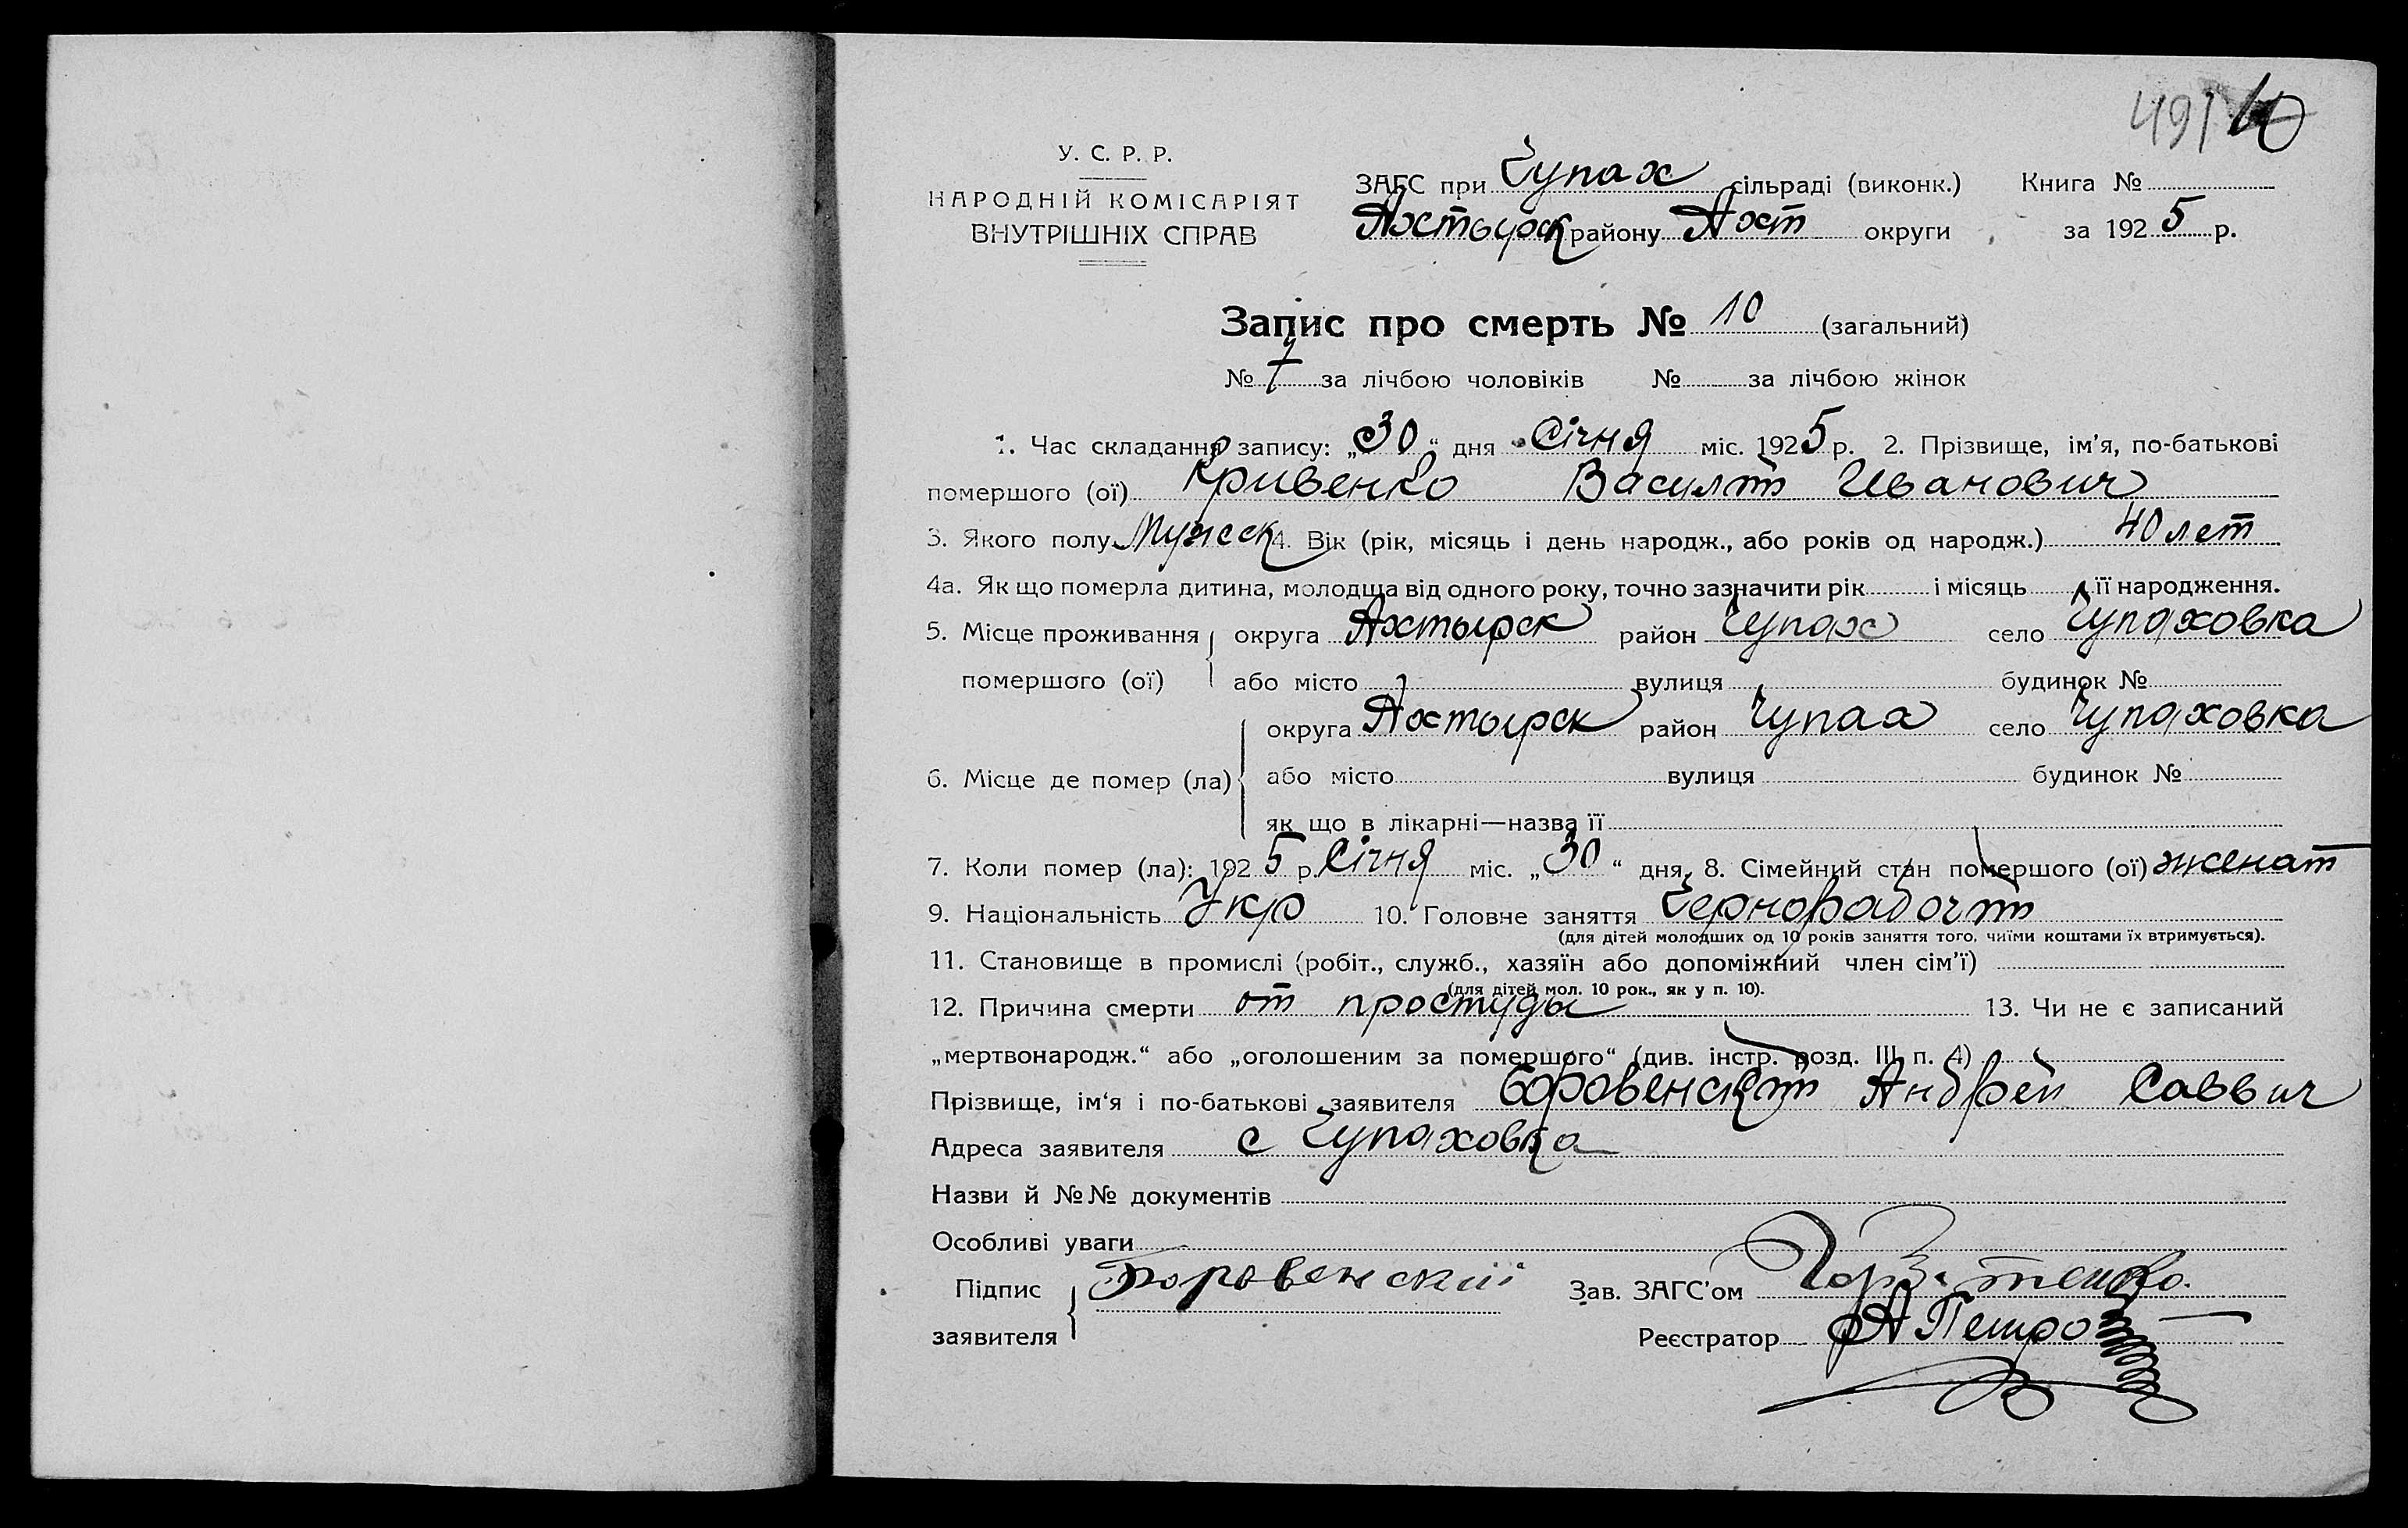 491 10
У. С. Р. Р.
НАРОДНІЙ КОМІСАРІЯТ
ВНУТРІШНІХ СПРАВ
ЗАГС при Чупах сільраді (виконк.) Книга №
Ахтырск району Ахт округи за 1925 р.
Запис про смерть № 10 (загальний)
№ 7 за лічбою чоловіків № за лічбою жінок
1. Час складання запису: „30“ дня Січня міс. 1925 р. 2. Прізвище, ім’я, по-батькові
помершого (ої) Кривенко Василий Иванович
3. Якого полу Мужск 4. Вік (рік, місяць і день народж., або років од народж.) 40 лет
4а. Як що померла дитина, молодша від одного року, точно зазначити рік і місяць її народження.
5. Місце проживання округа Ахтырск район Чупах село Чупаховка
помершого (ої) або місто вулиця будинок №
округа Ахтырск район Чупах село Чупаховка
6. Місце де помер (ла) або місто вулиця будинок №
як що в лікарні—назва її
7. Коли помер (ла): 1925 р. Січня міс. „30“ дня, 8. Сімейний стан помершого (ої) женат
9. Національність Укр 10. Головне заняття Чернорабочий
(для дітей молодших од 10 років заняття того, чиїми коштами їх втримується).
11. Становище в промислі (робіт., служб., хазяїн або допоміжний член сім’ї)
(для дітей мол. 10 рок., як у п. 10).
12. Причина смерти от простуды 13. Чи не є записаний
„мертвонародж.“ або „оголошеним за помершого“ (див. інстр. розд. III п. 4)
Прізвище, ім‘я і по-батькові заявителя Боровенский Андрей Саввич
Адреса заявителя с Чупаховка
Назви й №№ документів
Особливі уваги
Підпис Боровенский Зав. ЗАГС’ом
заявителя Реєстратор А Петро